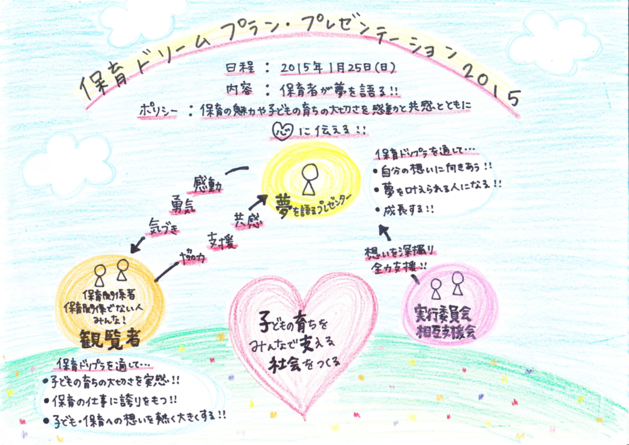 保育ドリームプラン・プレゼンテーション2015
日程：2015年1月25日(日)
内容：保育者が夢を語る!!
ポリシー：保育の魅力や子どもの育ちの大切さを感動と共感とともに
心に伝える!!
保育ドリプラを通して…
・自分の想いに向きあう!!
・夢を叶えられる人になる!!
・成長する!!
夢を語るプレゼンター
感動
勇気
気づき
共感
支援
協力
想いを深掘り
全力支援!!
保育関係者
保育関係でない人
みんな!
観覧者
実行委員会
相互支援会
子どもの育ちを
みんなで支える
社会をつくる
保育ドリプラを通して…
・子どもの育ちの大切さを実感!!
・保育の仕事に誇りをもつ!!
・子ども・保育への想いを熱く大きくする!!